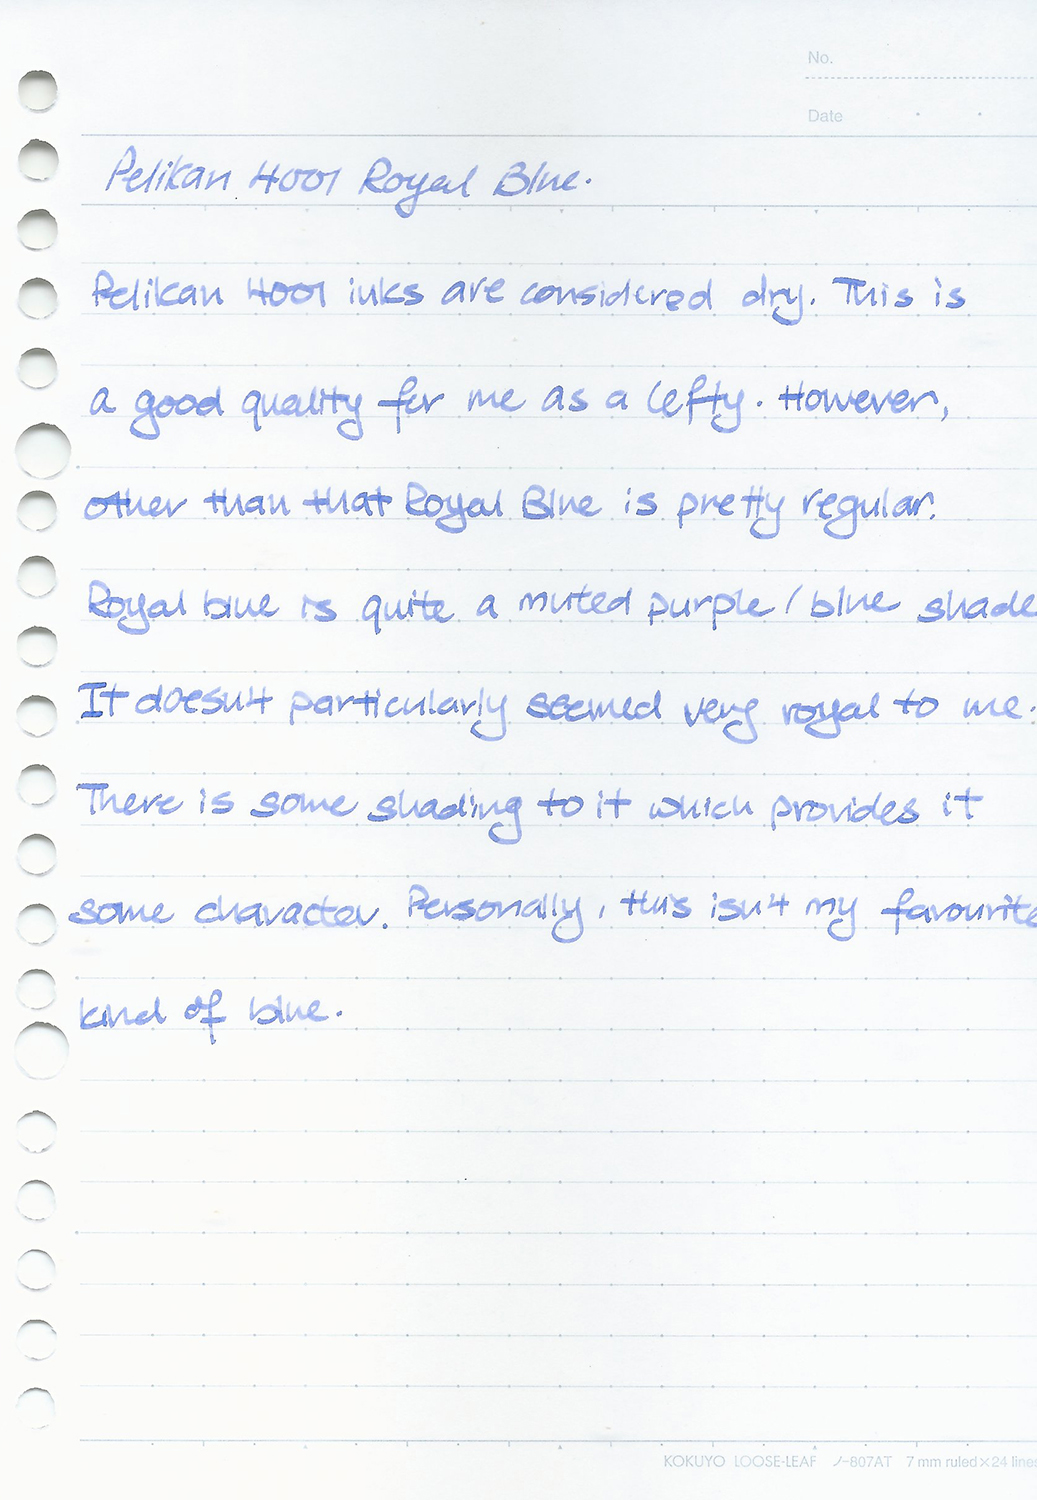 No.
Date
Pelikan 4001 Royal Blue.
Pelikan 4001 inks are considered dry. This is
a good quality for me as a lefty. However,
other than that Royal Blue is pretty regular.
Royal blue is quite a muted purple / blue shade
It doesn't particularly seemed very royal to me.
There is some shading to it which provides it
some character. Personally, this isn't my favourite
kind of blue.
KOKUYO LOOSE-LEAF ノ-807AT 7 mm ruled×24 lines